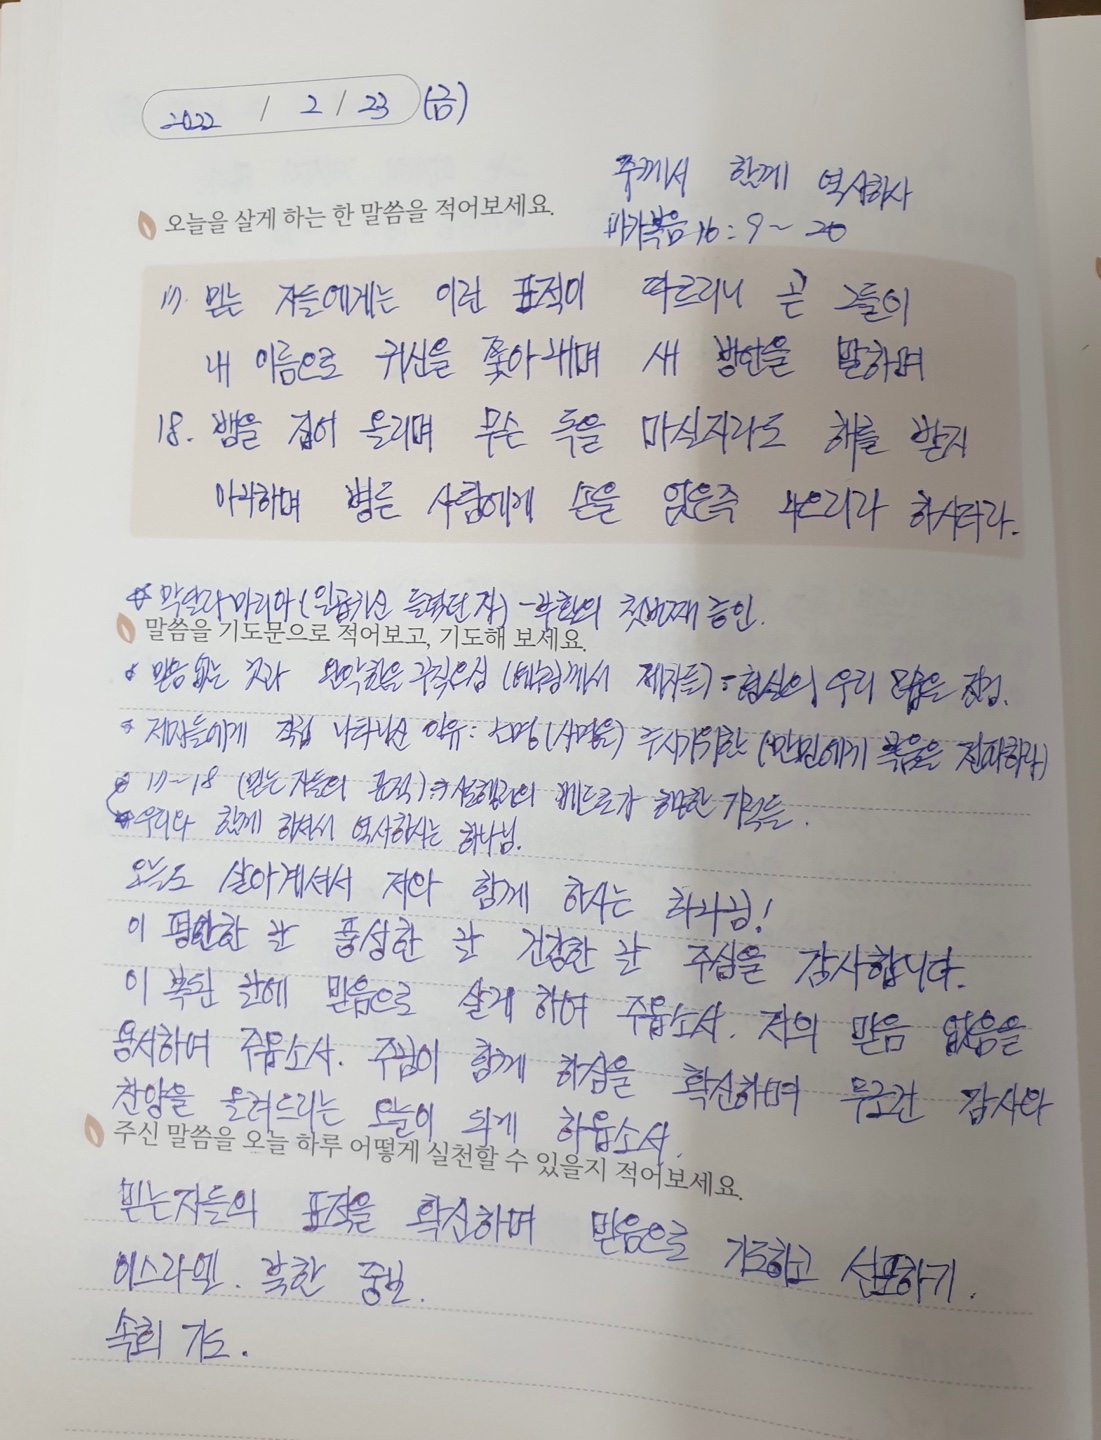 2022 / 2 / 23 (금)
주께서 함께 역사하사
마가복음 16 : 9 ~ 20
오늘을 살게 하는 한 말씀을 적어보세요.
17. 믿는 자들에게는 이런 표적이 따르리니 곧 그들이
내 이름으로 귀신을 쫓아내며 새 방언을 말하며
18. 뱀을 집어 올리며 무슨 독을 마실지라도 해를 받지
아니하며 병든 사람에게 손을 얹은즉 나으리라 하시더라.
* 막달라 마리아 (일곱귀신 들렸던 자) - 부활의 첫번째 증인.
말씀을 기도문으로 적어보고, 기도해 보세요.
* 믿음 없는 것과 완악함을 꾸짖으심 (예수님께서 제자들) : 우리 모습을 점검.
* 제자들에게 직접 나타나신 이유: 소명(사명을) 주시기위함 (만민에게 복음을 전파하라)
* 17~18 (믿는 자들의 표적) ⇒ 사도행전의 베드로가 행한 기적들.
* 우리와 함께 하셔서 역사하시는 하나님.
오늘도 살아계셔서 저와 함께 하시는 하나님!
이 평안한 날 풍성한 날 건강한 날 주심을 감사합니다.
이 복된 날에 믿음으로 살게 하여 주옵소서. 저의 믿음 없음을
용서하여 주옵소서. 주님이 함께 하심을 확신하며 무조건 감사와
찬양을 올려드리는 오늘이 되게 하옵소서.
주신 말씀을 오늘 하루 어떻게 실천할 수 있을지 적어보세요.
믿는자들의 표적을 확신하며 믿음으로 기도하고 선포하기.
이스라엘. 북한 중보.
속회 기도.